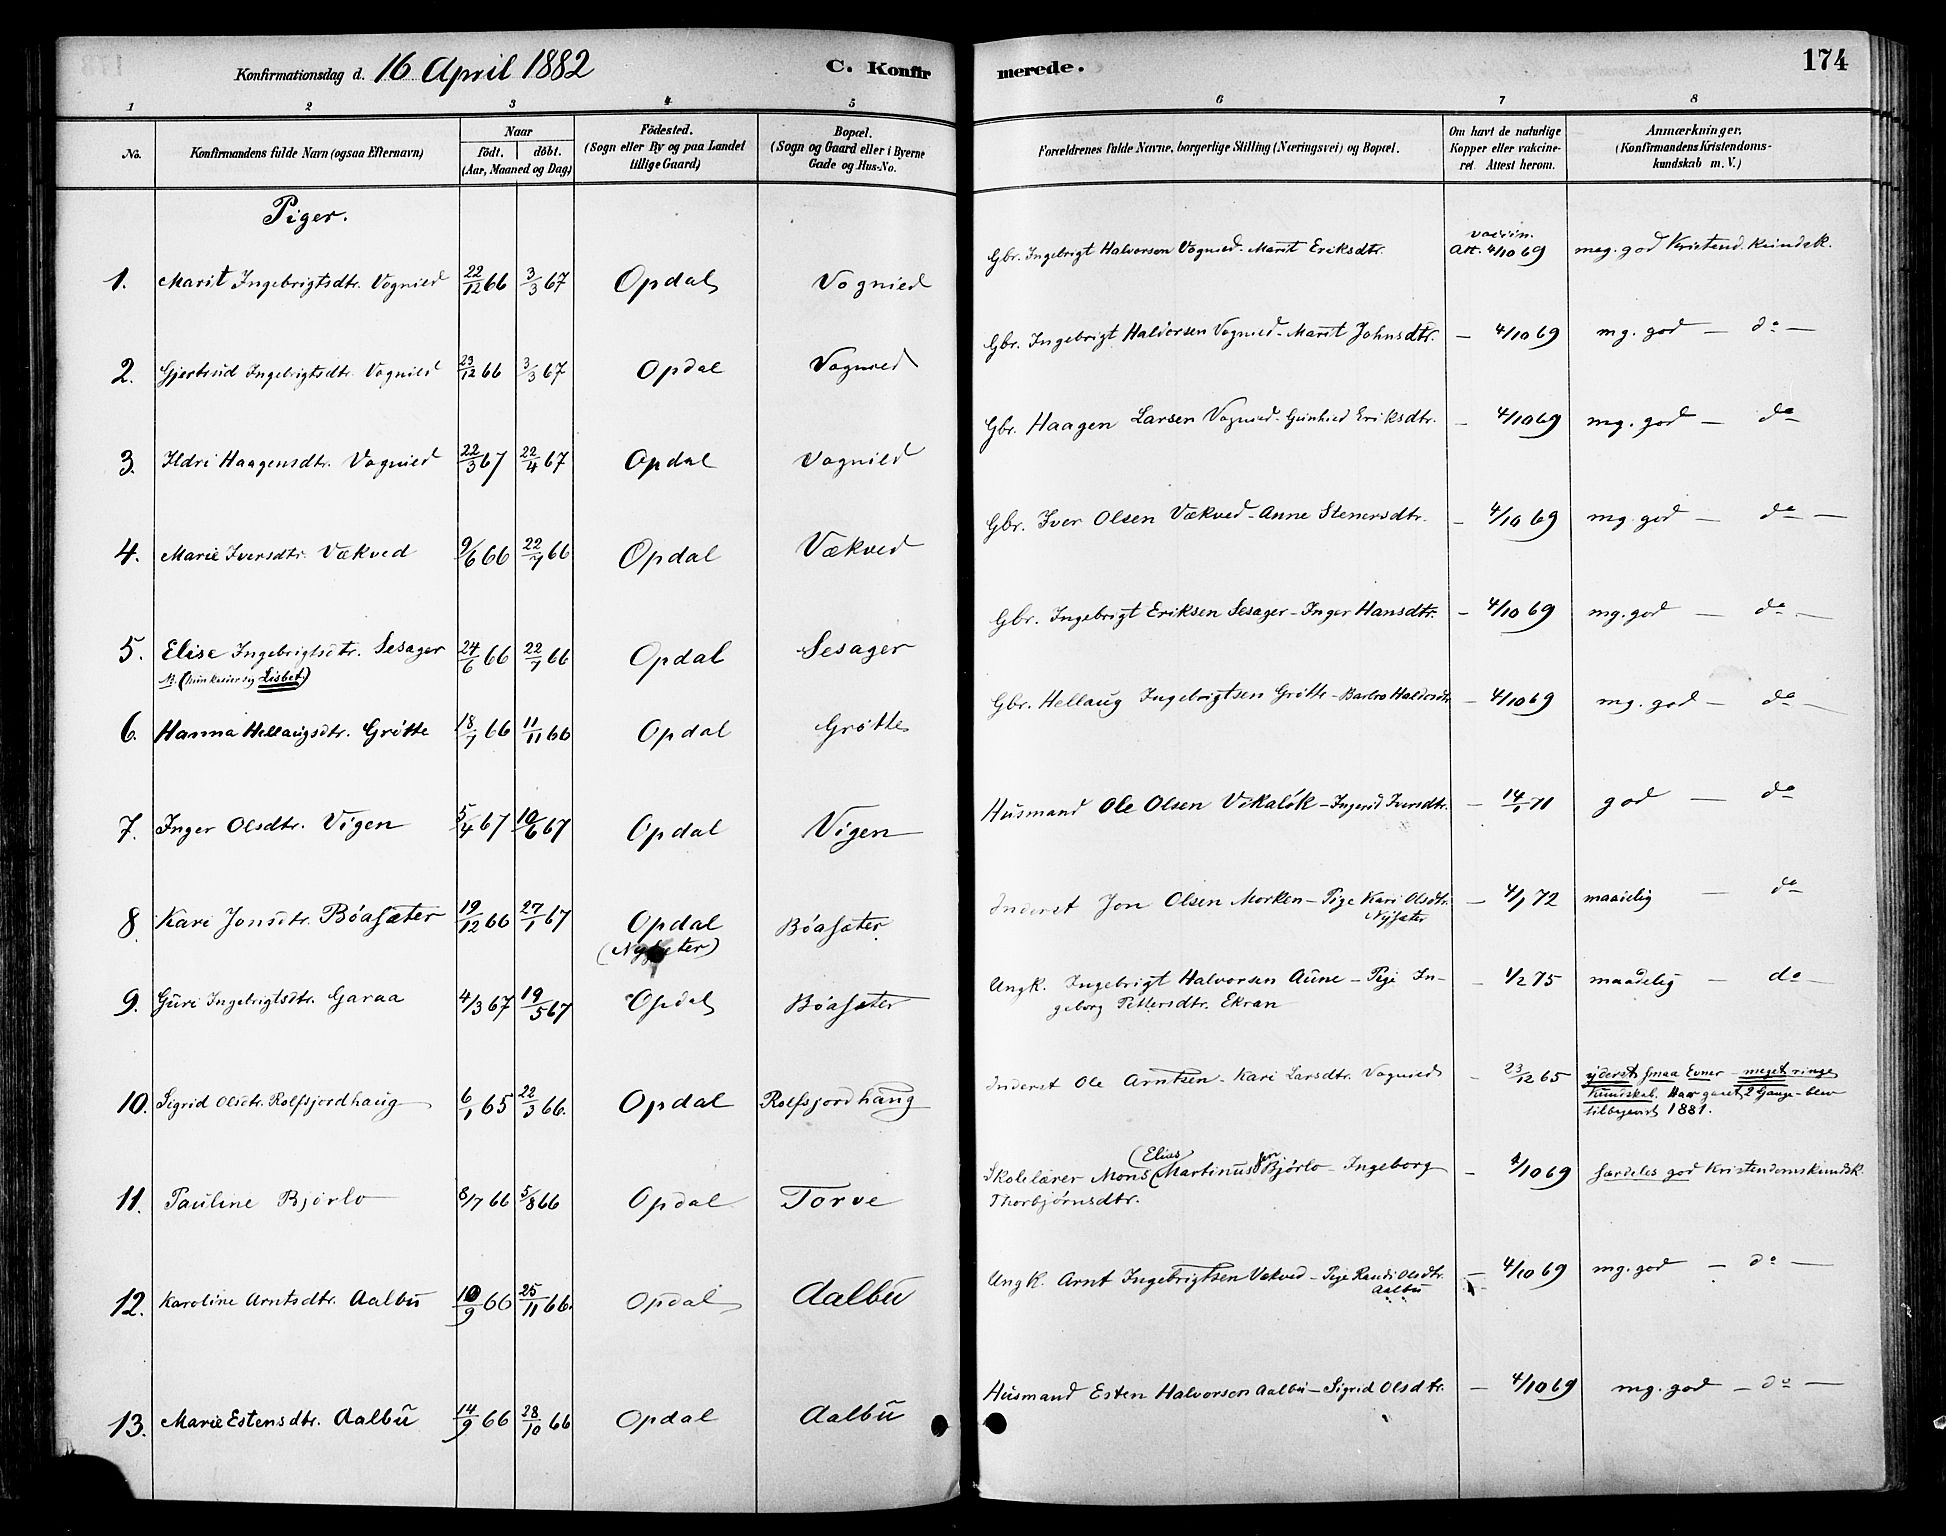 Konfirmationsdag d. 16 April 1882
C. Konfirmerede.
174
1 2 3 4 5 6 7 8
No.
Konfirmandens fulde Navn (ogsaa Efternavn)
Naar
födt. döbt.
(Aar, Maaned og Dag)
Födested.
(Sogn eller By og paa Landet
tillige Gaard)
Bopæl.
(Sogn og Gaard eller i Byerne
Gade og Hus-No.
Forældrenes fulde Navne, borgerlige Stilling (Næringsvei) og Bopæl.
Om havt de naturlige
Kopper eller vakcine-
ret. Attest herom.
Anmærkninger,
(Konfirmandens Kristendoms-
kundskab m. V.)
Piger.
1. Marit Ingebrigtsdtr. Vognild 22/12 66 3/3 67 Opdal Vognild Gbr. Ingebrigt Halvorsen Vognild - Marit Eriksdtr. vaccin. Att. 4/10 69 meg. god Kristend. kundsk.
2. Gjertrud Ingebrigtsdtr. Vognild 23/12 66 3/3 67 Opdal Vognild Gbr. Ingebrigt Haldorsen Vognild - Marit Johnsdtr. — 4/10 69 mg. god — do —
3. Ildri Haagensdtr. Vognild 22/3 67 22/4 67 Opdal Vognild Gbr. Haagen Larsen Vognild - Gunhild Eriksdtr. — 4/10 69 mg. god — do
4. Marie Iversdtr. Vækved 9/6 66 22/7 66 Opdal Vækved Gbr. Iver Olsen Vækved - Anne Stenersdtr. — 4/10 69 mg. god — do —
5. Elise Ingebrigtsdtr. Sesager 24/6 66 22/7 66 Opdal Sesager Gbr. Ingebrigt Eriksen Sesager - Inger Hansdtr. — 4/10 69 mg. god — do —
(hun kalder sig Lisbet)
6. Hanna Hellaugsdtr. Grøtte 18/7 66 11/11 66 Opdal Grøtte Gbr. Hellaug Ingebrigtsen Grøtte - Barbro Haldosdtr — 4/10 69 mg. god — do —
7. Inger Olsdtr. Vigen 5/4 67 10/6 67 Opdal Vigen Husmand Ole Olsen Vekaløk - Ingerid Iversdtr. — 14/1 71 god — do
8. Kari Jonsdtr. Bøasæter 19/12 66 27/1 67 Opdal Bøasæter Inderst Jon Olsen Morken - Pige Kari Olsdtr. — 4/1 72 maadelig — do
(Nysæter) Nysæter
9. Guri Ingebrigtsdtr. Garaa 4/3 67 19/5 67 Opdal Bøasæter Ungk. Ingebrigt Halvorsen Aune - Pige In- — 1/2 75 maadelig — do —
geborg Pettersdtr. Ekran
10. Sigrid Olsdtr. Rolfsjordhaug 6/1 65 22/3 66. Opdal Rolfsjordhaug Inderst Ole Arntsen - Kari Larsdtr. Vognild — 23/12 65 yderst smaa Evner - meget ringe
Kundskab. Har gaaet 2 Gange - blev
tilbagevist 1881.
11. Pauline Bjørlo 8/7 66 5/8 66 Opdal Torve Skolelærer Mons (Elias) Martinussen Bjørlo - Ingeborg — 4/10 69 særdeles god Kristendomskundsk.
Thorbjørnsdtr.
12. Karoline Arntsdtr. Aalbu 10/9 66 25/11 66. Opdal Aalbu Ungk. Arnt Ingebrigtsen Vækved - Pige Randi Olsdtr. — 4/10 69 mg. god — do —
Aalbu
13. Marie Estensdtr. Aalbu 14/9 66 28/10 66 Opdal Aalbu Husmand Esten Halvorson Aalbu - Sigrid Olsdtr. — 4/10 69 mg. god — do —